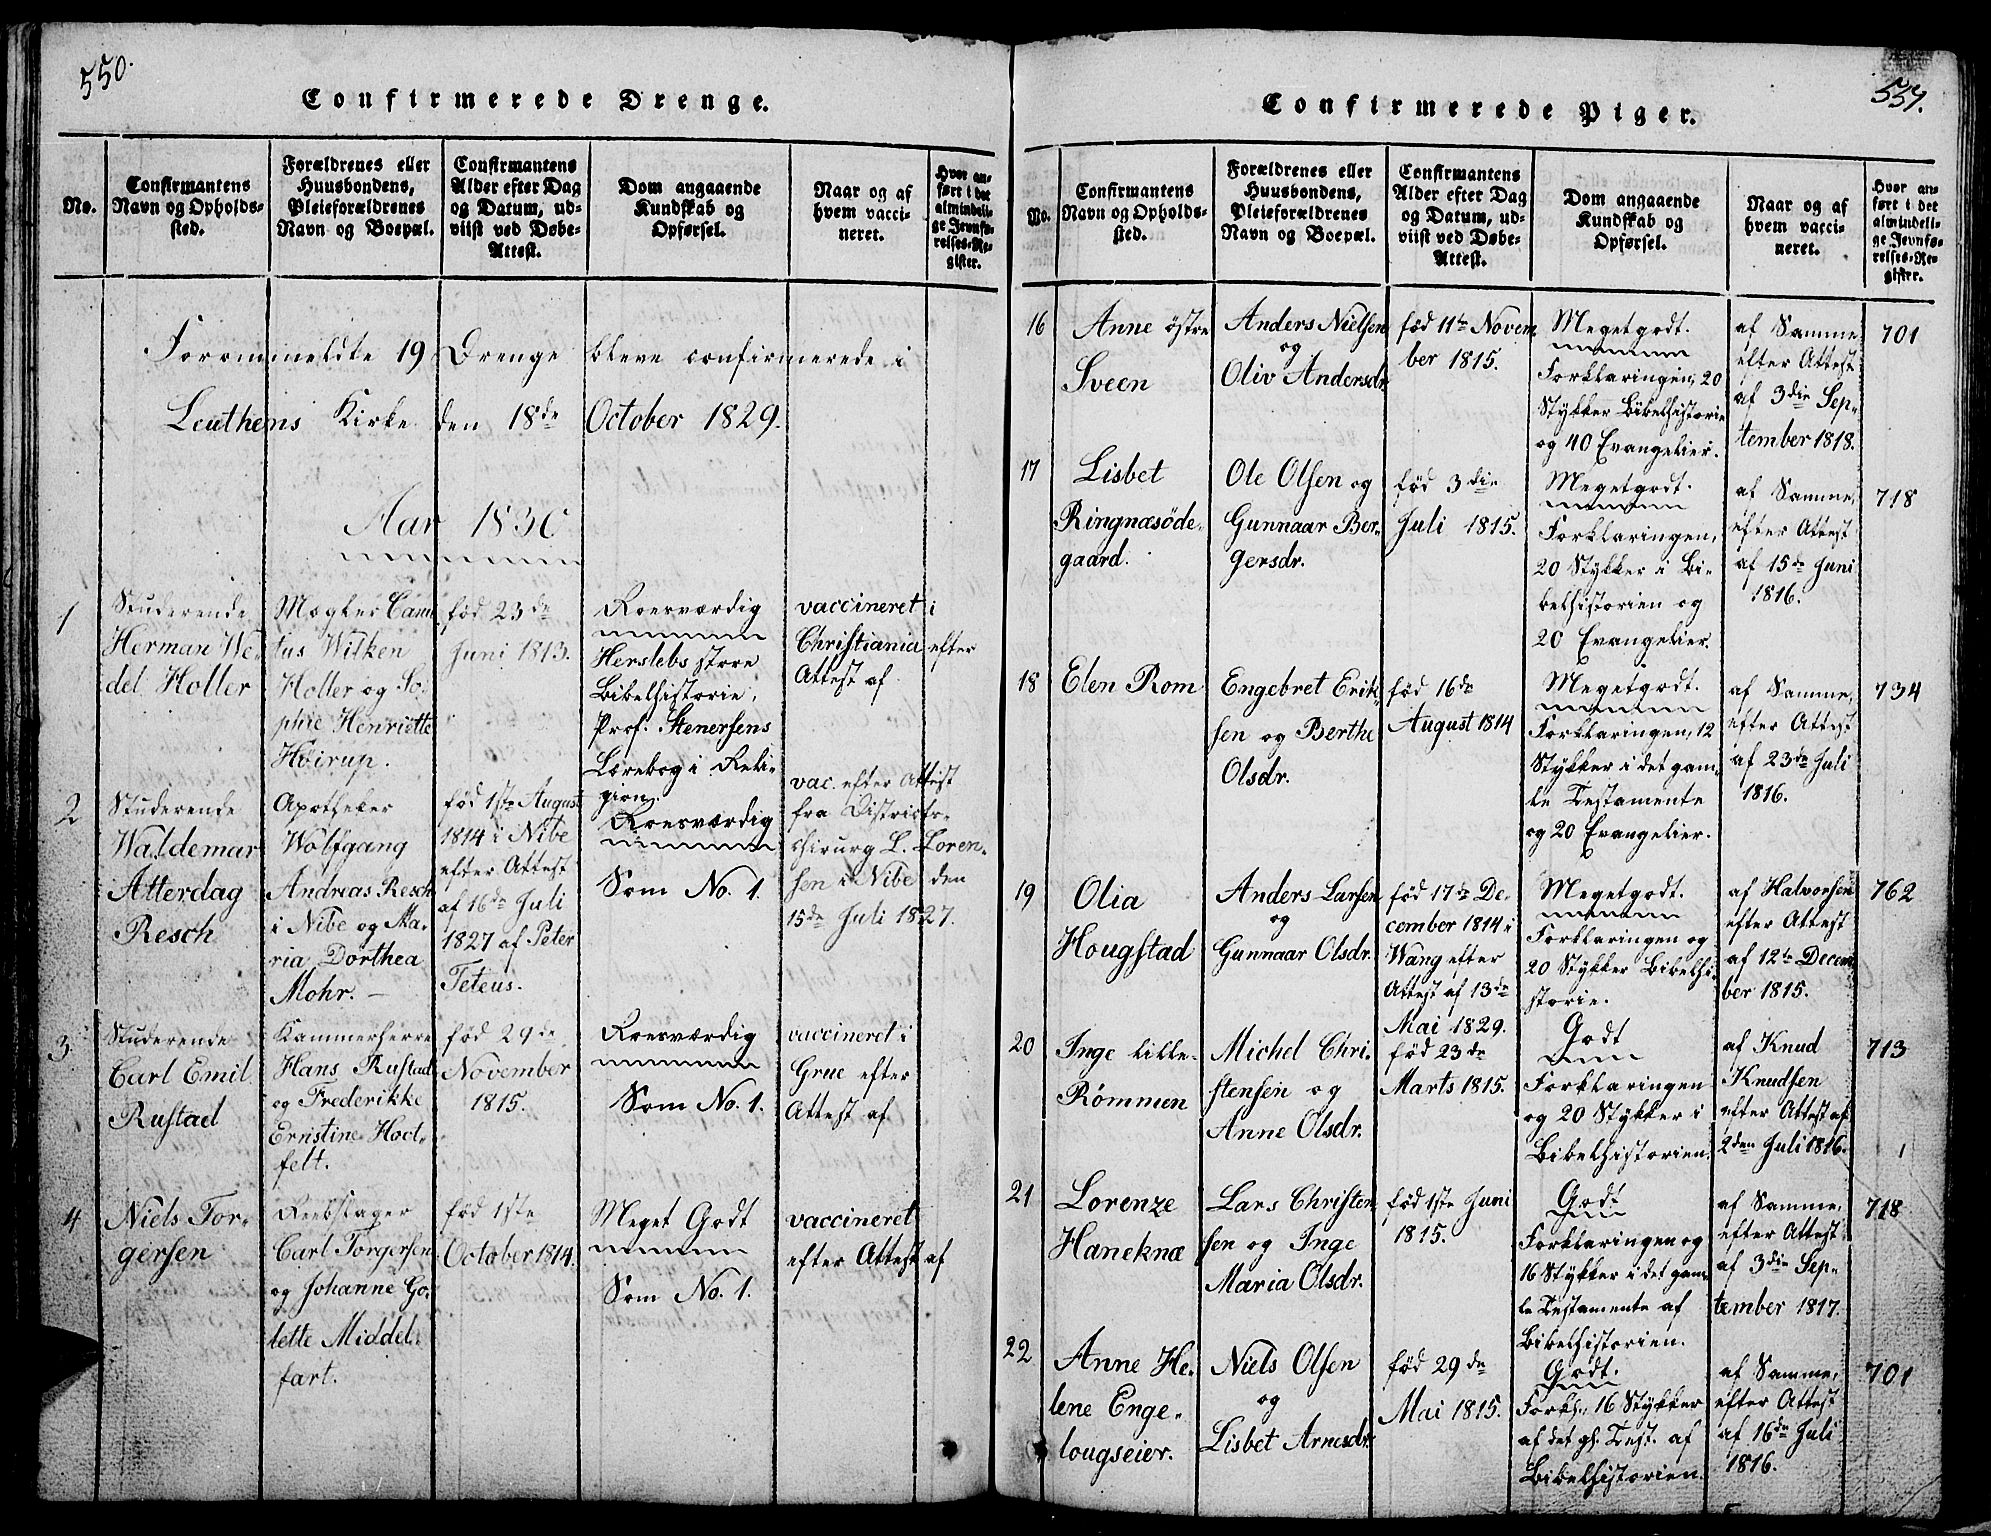 550.
Confirmerede Drenge.
No.
Confirmantens
Navn og Opholds-
sted.
Forældrenes eller
Huusbondens,
Pleieforældrenes
Navn og Boepæl.
Confirmantens
Alder efter Dag
og Datum, ud-
viist ved Døbe-
Attest.
Dom angaaende
Kundskab og
Opførsel.
Naar og af
hvem vacci-
neret.
Hvor an-
ført i det
almindeli-
ge Jevnfø-
relses-Re-
gister.
Forommeldte 19 Drenge bleve confirmerede i
Leuthens Kirke den 18de October 1829.
Aar 1830
1
Studerende
Herman We-
del Holler
Mægler Canu
tus Wilken
Holler og So-
phie Henriette
Høirup.
fød 23de
Juni 1813.
Roesværdig
Herslebs store
Bibelhistorie,
Prof. Stenersens
Lærebog i Reli-
gion.
vaccineret i
Christiania efter
Attest af
2
Studerende
Waldemar
Atterdag
Resch
Apotheker
Wolfgang
Andreas Resch
i Nibe og Ma-
ria Dorthea
Mohr. —
fød 1ste August
1814 i Nibe
efter Attest
af 16de Juli
1827 af Peter
Teteus.
Roesværdig
Som No. 1.
vac. efter Attest
fra Districts-
chirurg L. Loren-
sen i Nibe den
15de Juli 1827.
3.
Studerende
Carl Emil
Rustad
Kammerherre
Hans Rustad
og Frederikke
Ernstine Hoct-
felt.
fød 29de
November
1815.
Roesværdig
Som No. 1.
vaccineret i
Grue efter
Attest af
4
Niels Tor-
gersen
Reebslager
Carl Torgersen
og Johanne Go-
lette Middel-
fart.
fød 1ste
October 1814.
Meget Godt
Som No. 1.
vaccineret
efter Attest af
557.
Confirmerede Piger.
No.
Confirmantens
Navn og Opholds-
sted.
Forældrenes eller
Huusbondens,
Pleieforældrenes
Navn og Boepæl.
Confirmantens
Alder efter Dag
og Datum, ud-
viist ved Døbe-
Attest.
Dom angaaende
Kundskab og
Opførsel.
Naar og af
hvem vacci-
neret.
Hvor an-
ført i det
almindeli-
ge Jevnfø-
relses-Re-
gister.
16
Anne østre
Sveen
Anders Nielsen
og
Oliv Andersdr.
fød 11te Novem
ber 1815.
Megetgodt.
Forklaringen, 20
Stykker Bibelhistorie
og 40 Evangelier.
af Samme
efter Attest
af 3die Sep-
tember 1818.
701
17
Lisbet
Ringnæsøde-
gaard.
Ole Olsen og
Gunnaar Ber-
gersdr.
fød 3die
Juli 1815.
Megetgodt.
Forklaringen,
20 Stykker i Bi-
belhistorien og
20 Evangelier.
af Samme,
efter Attest
af 15de Juni
1816.
718
18
Elen Rom
Engebret Erik-
sen og Berthe
Olsdr.
fød 16de
August 1814
Megetgodt.
Forklaringen, 12
Stykker i det gam-
le Testamente
og 20 Evangelier.
af Samme,
efter Attest
af 23de Juli
1816.
734
19
Olia
Hougstad
Anders Larsen
og
Gunnaar Olsdr.
fød 17de De-
cember 1814 i
Wang efter
Attest af 13de
Mai 1829.
Megetgodt.
Forklaringen og
20 Stykker Bibelhi-
storie.
af Halvorsen
efter Attest
af 12te Decem
ber 1815.
762
20
Inge lille-
Rømmen
Michel Chri-
stensen og
Anne Olsdr.
fød 23de
Marts 1815.
Godt
Forklaringen
og 20 Stykker i
Bibelhistorien.
af Knud
Knudsen
efter Attest af
2den Juli 1816.
713
21
Lorenze
Haneknæ
Lars Christen
sen og Inge
Maria Olsdr.
fød 1ste Juni
1815.
Godt
Forklaringen og
16 Stykker i det gam-
le Testamente af
Bibelhistorien.
af Samme,
efter Attest
af 3die Sep-
tember 1817.
718
22
Anne He-
lene Enge-
lougseier.
Niels Olsen
og
Lisbet Arnesdr.
fød 29de
Mai 1815.
Godt.
Forkl., 16 Stykker
af det gl. Test. af
Bibelhistorien.
af Samme,
efter Attest
af 16de Juli
1816.
701